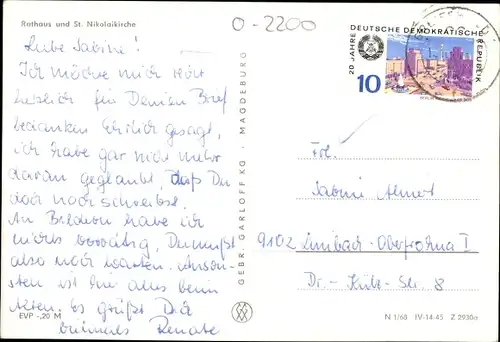 Rathaus und St. Nikolaikirche
O-2200
Liebe Sabine!
Ich möchte mich recht
herzlich für Deinen Brief
bedanken. Ehrlich gesagt,
ich habe gar nicht mehr
daran geglaubt, daß Du
doch noch schreibst.
An Bildern habe ich
nichts vorrätig, Du mußt
also noch warten. Anson-
sten ist hier alles beim
Alten. Es grüßt Dich
Renate
EVP -,20 M
GEBR. GARLOFF KG · MAGDEBURG
20 JAHRE DEUTSCHE DEMOKRATISCHE REPUBLIK
10
Frl.
Sabine
9102 Limbach-Oberfrohna I
Dr.-Külz-Str. 8
N 1/68 IV-14-45 Z 2930n